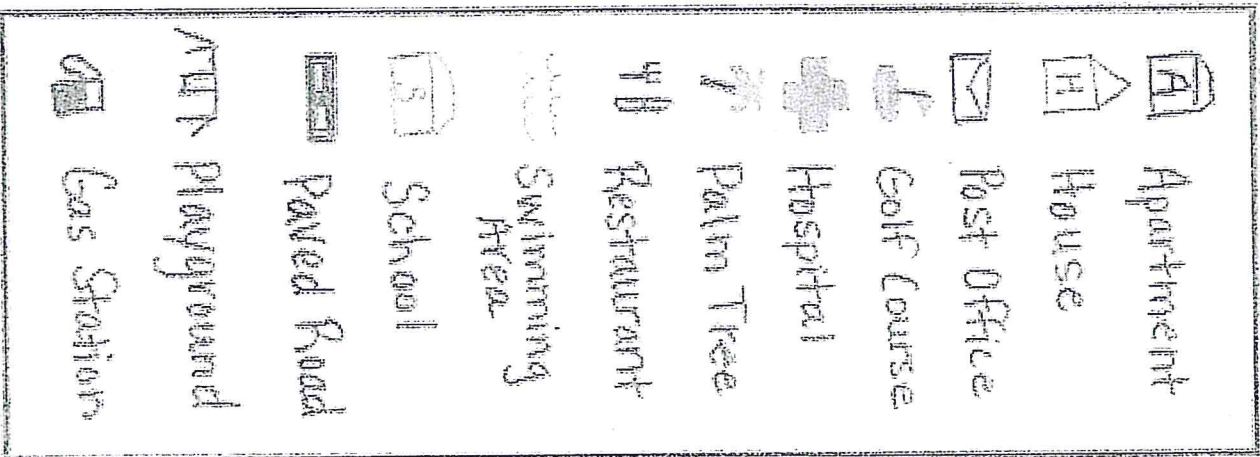 A Apartment
H House
Post Office
Golf Course
Hospital
Palm Tree
Restaurant
Swimming
Area
S School
Paved Road
Playground
Gas Station